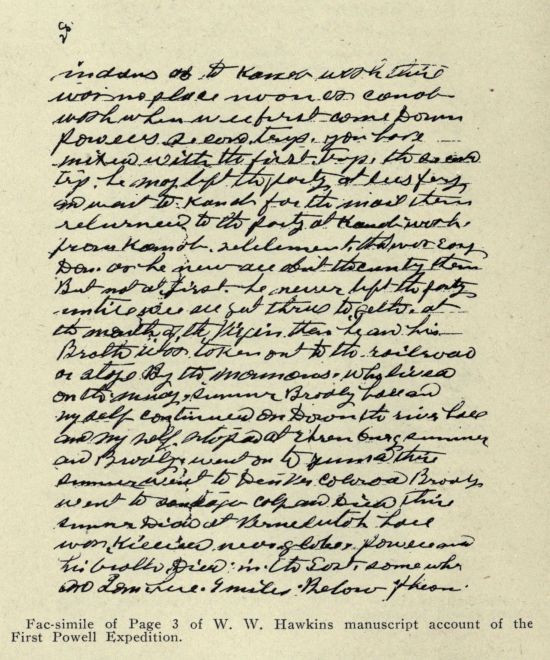 indans as to Kanab wash thire
was no place noon as canab
wash when wee first come Down
Powells second trip. you have
mixed with the first trip, the second
trip. he may left the party at Lees fery
an went to Kanab for the mail then
returned to the party at Kanab wash
from Kanab. setelement that was Easy
Don as he new all about the cuntry then
But not at first he never left the party
untill wee all got thrue to gether, at
the mouth of the Virgin then he an his
Brother was taken out to the railroad
or stage By the mormons, who lived
on the mudy, sumner Bradly hall and
my self continued on Down the river hall
and my self stoped at Ehrenburg sumner
and Bradly went on to yuma thire
sumner went to Denver colorado Bradly
went to sandago cal, an Died thire
sumner Died at Vernal utah hall
was, Killed near globe, Powell and
his brother Died in the East some wher
an I am hire. 9 miles. Below
Fac-simile of Page 3 of W. W. Hawkins manuscript account of the
First Powell Expedition.